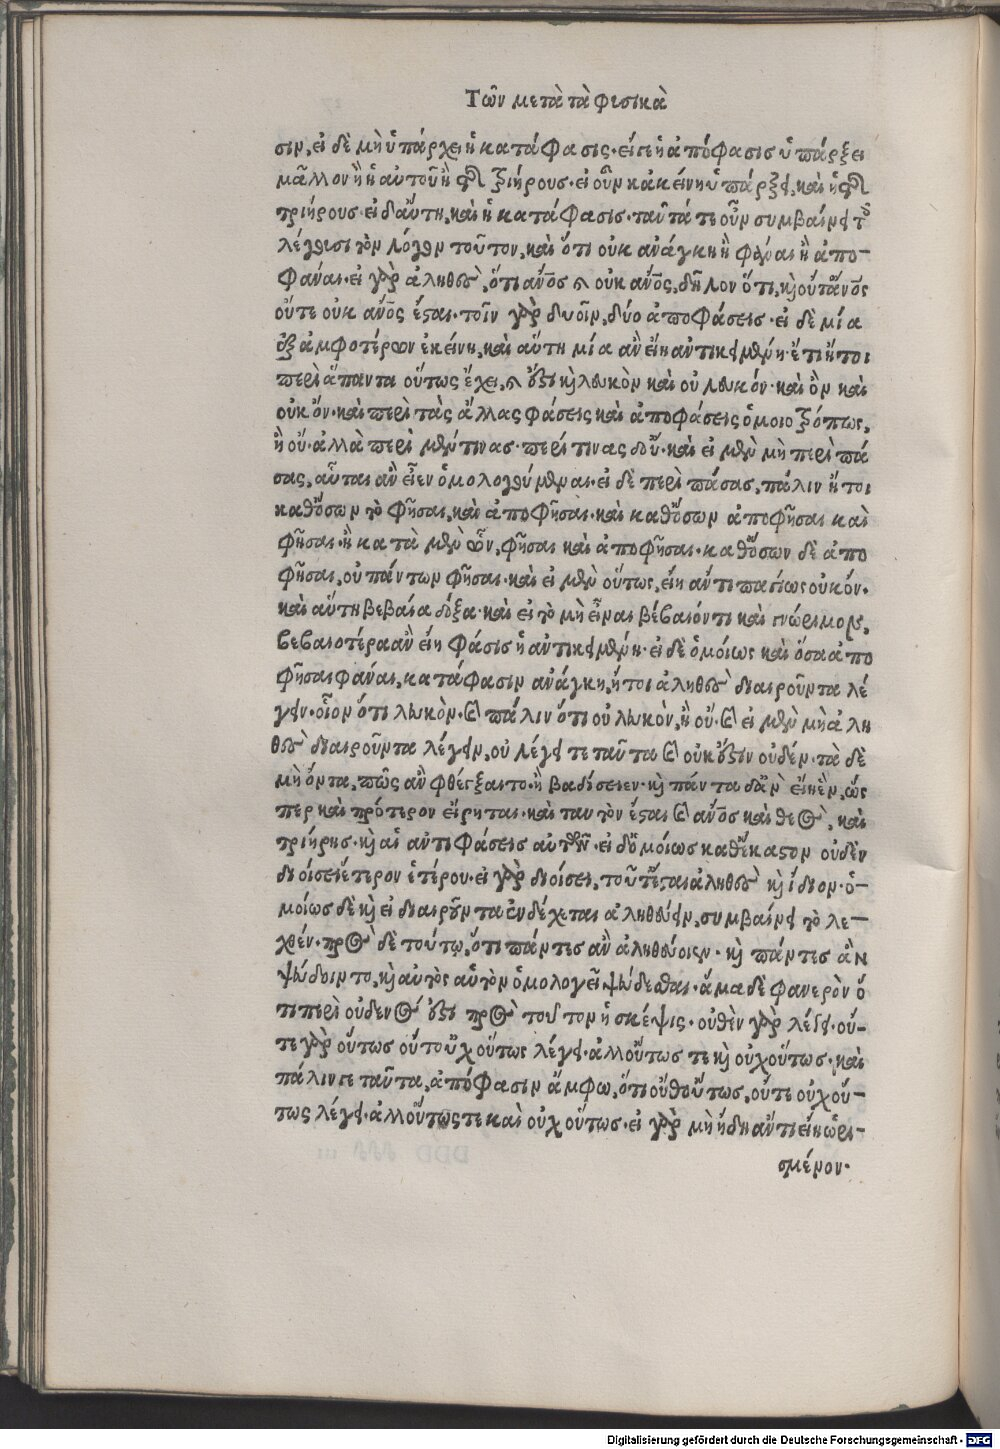 Τῶν μετὰ τὰ φυσικὰ
σιν, εἰ δὲ μὴ ὑπάρχει ἡ κατάφασις· εἴγε ἡ ἀπόφασισ ὑπάρξει
μᾶλλον ἢ ἡ αὐτοῦ ἢ τῆς τριήρους· εἰ οὖν κἀκείνη ὑπάρξει, καὶ ἡ τῆς
τριήρους· εἰ δ'αὕτη, καὶ ἡ κατάφασις· ταῦτά τε οὖν συμβαίνει τοῖς
λέγουσι τὸν λόγον τοῦτον, καὶ ὅτι οὐκ ἀνάγκη ἢ φάναι ἢ ἀπο-
φάναι· εἰ γὰρ ἀληθὲς, ὅτι ἄνος καὶ οὐκ ἄνος, δῆλον ὅτι, καὶ οὔτ'ἄνος
οὔτε οὐκ ἄνος ἔσται· τοῖν γὰρ δυοῖν, δύο ἀποφάσεις· εἰ δὲ μία
ἐξ ἀμφοτέρων ἐκείνη, καὶ αὕτη μία ἂν εἴη ἀντικειμένη· ἔτι ἤτοι
περὶ ἅπαντα οὕτως ἔχει, καὶ ἔστι καὶ λευκὸν καὶ οὐ λευκόν· καὶ ὂν καὶ
οὐκ ὄν· καὶ περὶ τὰς ἄλλας φάσεις καὶ ἀποφάσεις ὁμοιοτρόπως,
ἢ οὔ· ἀλλὰ περὶ μέν τινας· περί τινας δ'οὔ· καὶ εἰ μὲν μὴ περὶ πά
σας, αὗται ἂν εἶεν ὁμολογούμεναι· εἰ δὲ περὶ πάσας, πάλιν ἤτοι
καθ'ὅσων τὸ φῆσαι, καὶ ἀποφῆσαι· καὶ καθ'ὅσων ἀποφῆσαι καὶ
φῆσαι· ἢ κατὰ μὲν ὧν, φῆσαι καὶ ἀποφῆσαι· καθ'ὅσων δὲ ἀπο
φῆσαι, οὐ πάντων φῆσαι· καὶ εἰ μὲν οὕτως, εἴη ἄν τι παγίως οὐκ ὄν·
καὶ αὕτη βεβαία δόξα· καὶ εἰ τὸ μὴ εἶναι βέβαιόν τι καὶ γνώριμον,
βεβαιοτέρα ἂν εἴη φάσις ἡ ἀντικειμένη· εἰ δὲ ὁμοίως καὶ ὅσα ἀπο
φῆσαι φάναι, κατάφασιν ἀνάγκη, ἤτοι ἀληθὲς διαιροῦντα λέ
γειν· οἷον ὅτι λευκὸν· καὶ πάλιν ὅτι οὐ λευκὸν, ἢ οὔ· καὶ εἰ μὲν μὴ ἀλη
θὲς διαιροῦντα λέγειν, οὐ λέγει τε ταῦτα καὶ οὐκ ἔστιν οὐδέν· τὰ δὲ
μὴ ὄντα, πῶς ἂν φθέγξαιτο· ἢ βαδίσειεν· καὶ πάντα δ'ἂν εἴη ἓν, ὥς
περ καὶ πρότερον εἴρηται· καὶ ταυτὸν ἔσται καὶ ἄνος καὶ θεὸς, καὶ
τριήρης· καὶ αἱ ἀντιφάσεις αὐτῶν· εἰ δ'ὁμοίως καθ'ἕκαστον οὐδὲν
διοίσει ἕτερον ἑτέρου· εἰ γὰρ διοίσει, τοῦτ'ἔσται ἀληθὲς καὶ ἴδιον· ὁ-
μοίως δὲ καὶ εἰ διαιροῦντα ἐνδέχεται ἀληθεύειν, συμβαίνει τὸ λε-
χθέν· πρὸς δὲ τούτῳ, ὅτι πάντες ἂν ἀληθεύοιεν· καὶ πάντες ἂν
ψεύδοιντο, καὶ αὐτὸς αὑτὸν ὁμολογεῖ ψεύδεσθαι· ἅμα δὲ φανερὸν ὅ
τι περὶ οὐδενὸς ἔστι πρὸς τοῦτον ἡ σκέψις· οὐθὲν γὰρ λέγει· οὔ-
τε γὰρ οὕτως οὔτ'οὐχ οὕτως λέγει· ἀλλ'οὕτως τε καὶ οὐχ οὕτως· καὶ
πάλιν γε ταῦτα, ἀπόφασιν ἄμφω, ὅτι οὔθ'οὕτως, οὔτε οὐχ οὕ-
τως λέγει· ἀλλ'οὕτως τε καὶ οὐχ οὕτως· εἰ γὰρ μὴ ἤδη ἄν τι εἴη ὡρι-
σμένον·
Digitalisierung gefördert durch die Deutsche Forschungsgemeinschaft - DFG